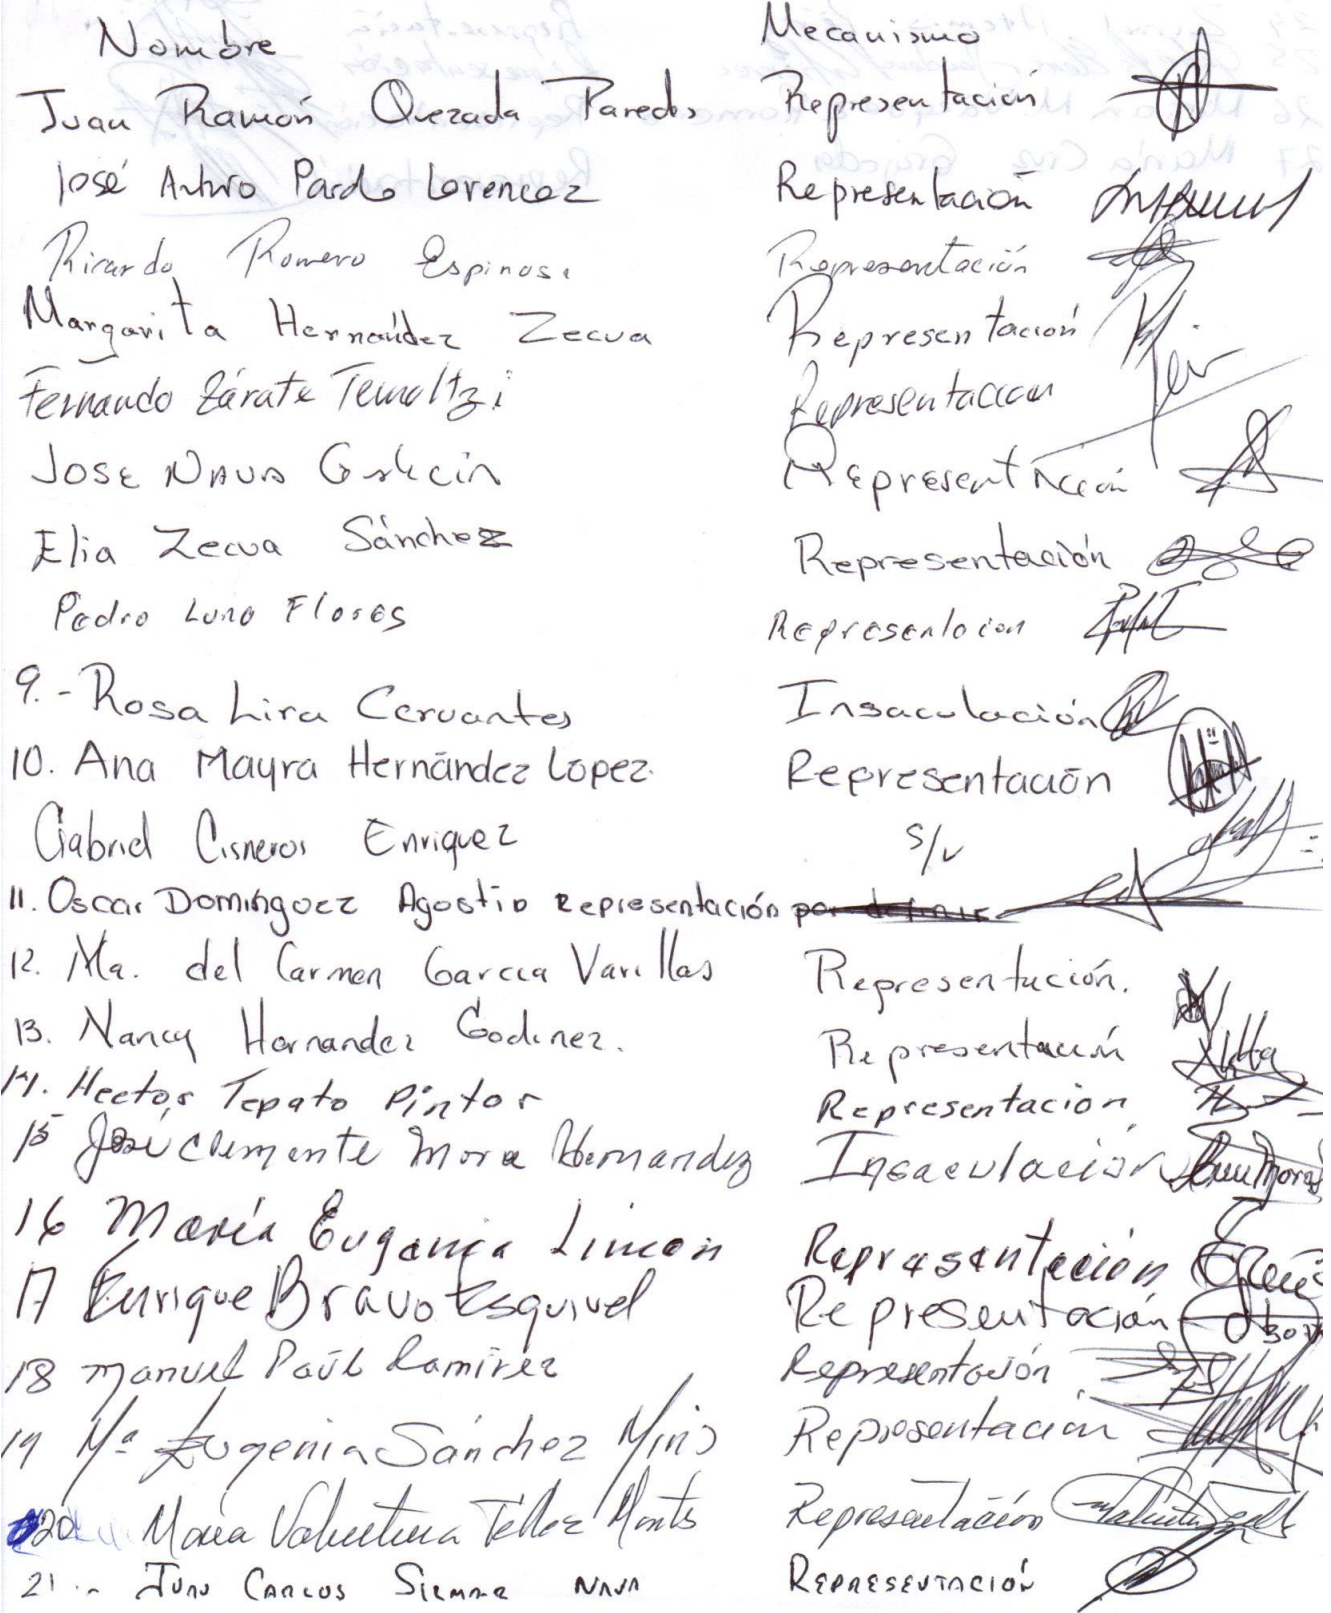 Nombre Mecanismo
Juan Ramón Quezada Paredes Representación
José Arturo Pardo Lorencez Representación
Ricardo Romero Espinosa Representación
Margarita Hernández Zecua Representación
Fernando Zárate Temoltzi Representacion
JOSE NAVA Galicia Representación
Elia Zecua Sánchez Representación
Pedro Luna Flores Representacion
9.- Rosa Lira Cervantes Insaculación
10. Ana Mayra Hernández Lopez. Representación
Gabriel Cisneros Enriquez S/V
11. Oscar Domínguez Agostio Representación por definir
12. Ma. del Carmen Garcia Varillas Representación.
13. Nancy Hernandez Godinez. Representación
14. Hector Tepato Pintor Representacion
15 José Clemente Mora Hernandez Insaculación
16 María Eugenia Limon Representación
17 Enrique Bravo Esquivel Representación
18 Manuel Paúl Ramírez Representación
19 Ma Eugenia Sánchez Representacion
20 María Valentina Téllez Representación
21.- Juan Carlos NAVA REPRESENTACIÓN